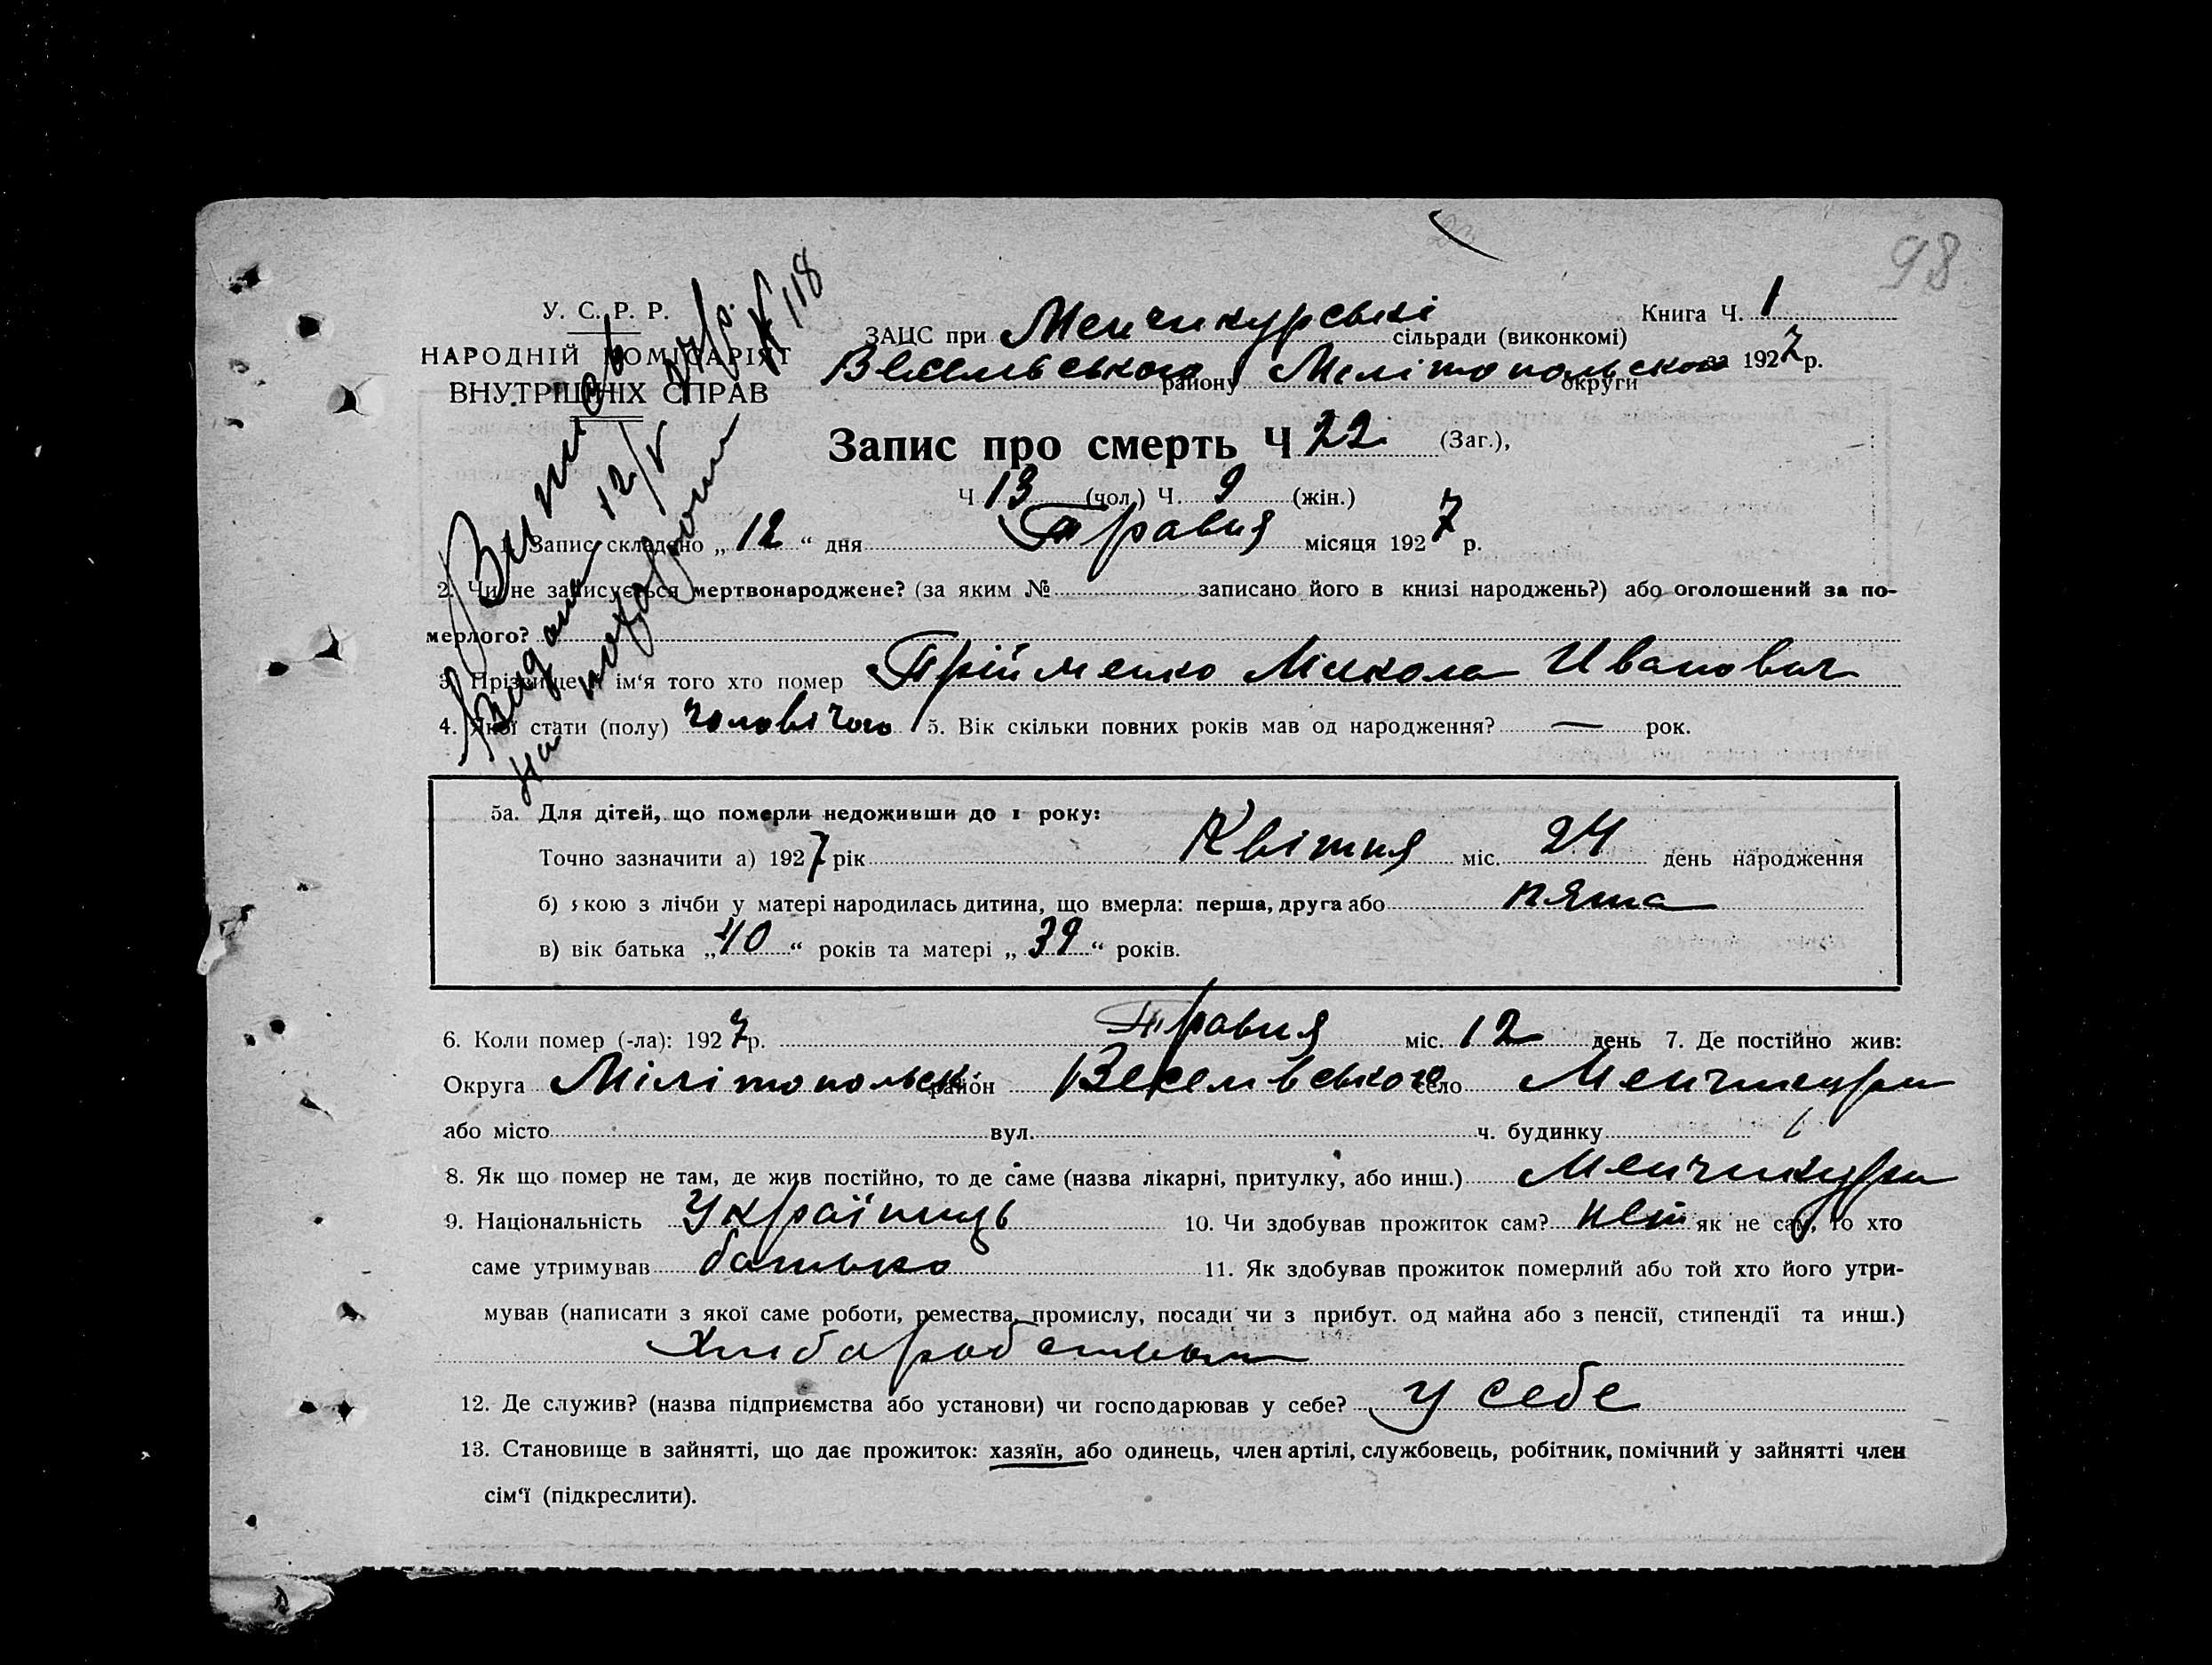 98
У. С. Р. Р.
НАРОДНІЙ КОМІСАРІЯТ
ВНУТРІШНІХ СПРАВ
Витяг
видани 12/V 27 р. № 118
на похорони
Книга Ч. 1
ЗАЦС при Менчикурські сільради (виконкомі)
Веселівського району Мелітопольского округи за 1927 р.
Запис про смерть Ч 22 (Заг.),
Ч 13 (чол.) Ч. 9 (жін.)
1. Запис складено „12“ дня Травня місяця 1927 р.
2. Чи не записується мертвонароджене? (за яким № записано його в книзі народжень?) або оголошений за по-
мерлого?
3. Прізвище й ім‘я того хто помер Прійменко Микола Иванович
4. Якої стати (полу) чоловічого 5. Вік скільки повних років мав од народження? — рок.
5а. Для дітей, що померли недоживши до 1 року:
Точно зазначити а) 1927 рік Квітня міс. 24 день народження
б) якою з лічби у матері народилась дитина, що вмерла: перша, друга або пята
в) вік батька „40“ років та матері „39“ років.
6. Коли помер (-ла): 1927 р. Травня міс. 12 день 7. Де постійно жив:
Округа Мілітопольск. район Веселівського село Менчикури
або місто вул. ч. будинку
8. Як що помер не там, де жив постійно, то де саме (назва лікарні, притулку, або инш.) Менчикури
9. Національність Українець 10. Чи здобував прожиток сам? нет як не сам, то хто
саме утримував батько 11. Як здобував прожиток померлий або той хто його утри-
мував (написати з якої саме роботи, ремества, промислу, посади чи з прибут. од майна або з пенсії, стипендії та инш.)
Хлибаробством
12. Де служив? (назва підприємства або установи) чи господарював у себе? у себе
13. Становище в зайнятті, що дає прожиток: хазяїн, або одинець, член артілі, службовець, робітник, помічний у зайнятті член
сім‘ї (підкреслити).